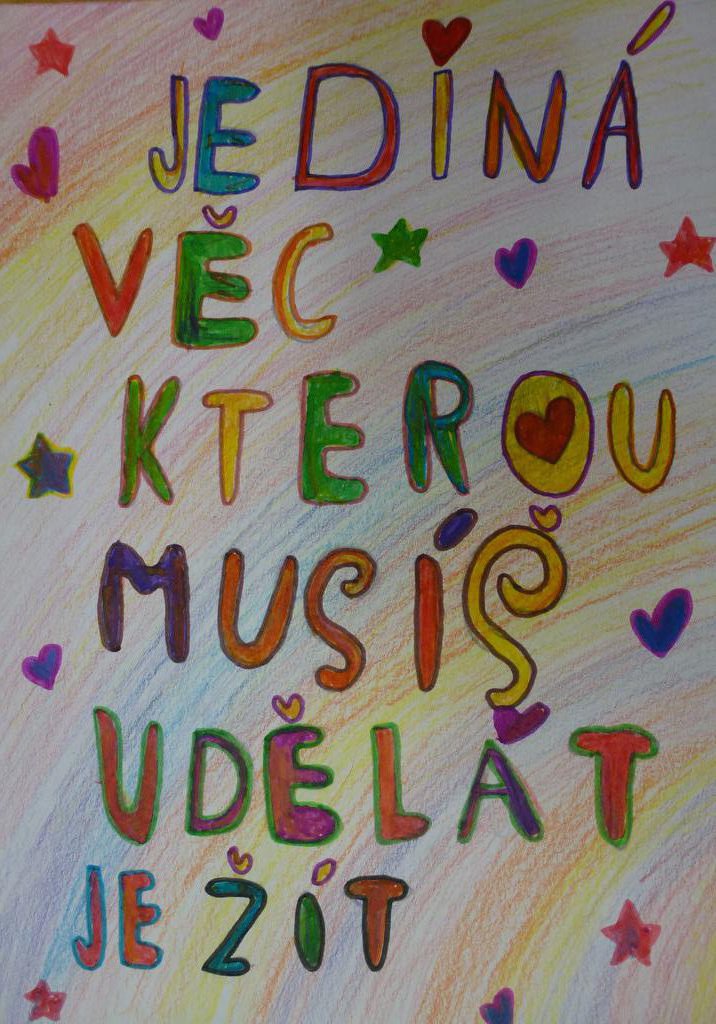 JEDINÁ
VĚC
KTEROU
MUSÍŠ
UDĚLAT
JE ŽÍT